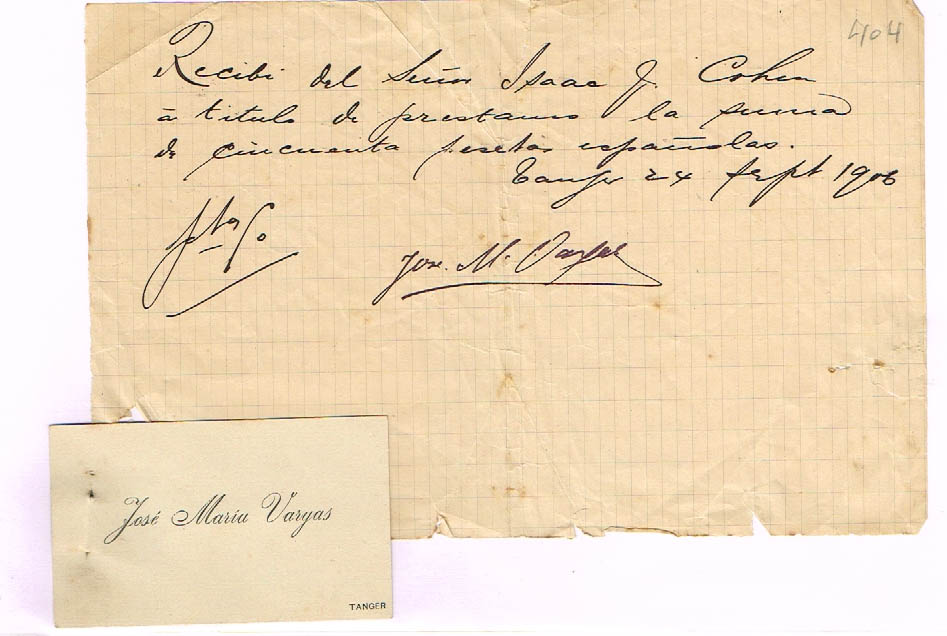 404
Recibi del Señor Isaac J. Cohen
á titulo de prestamo la suma
de cincuenta pesetas españolas.
Tanger 24 Sept 1906
Jose M. Vargas
José Maria Vargas
TANGER